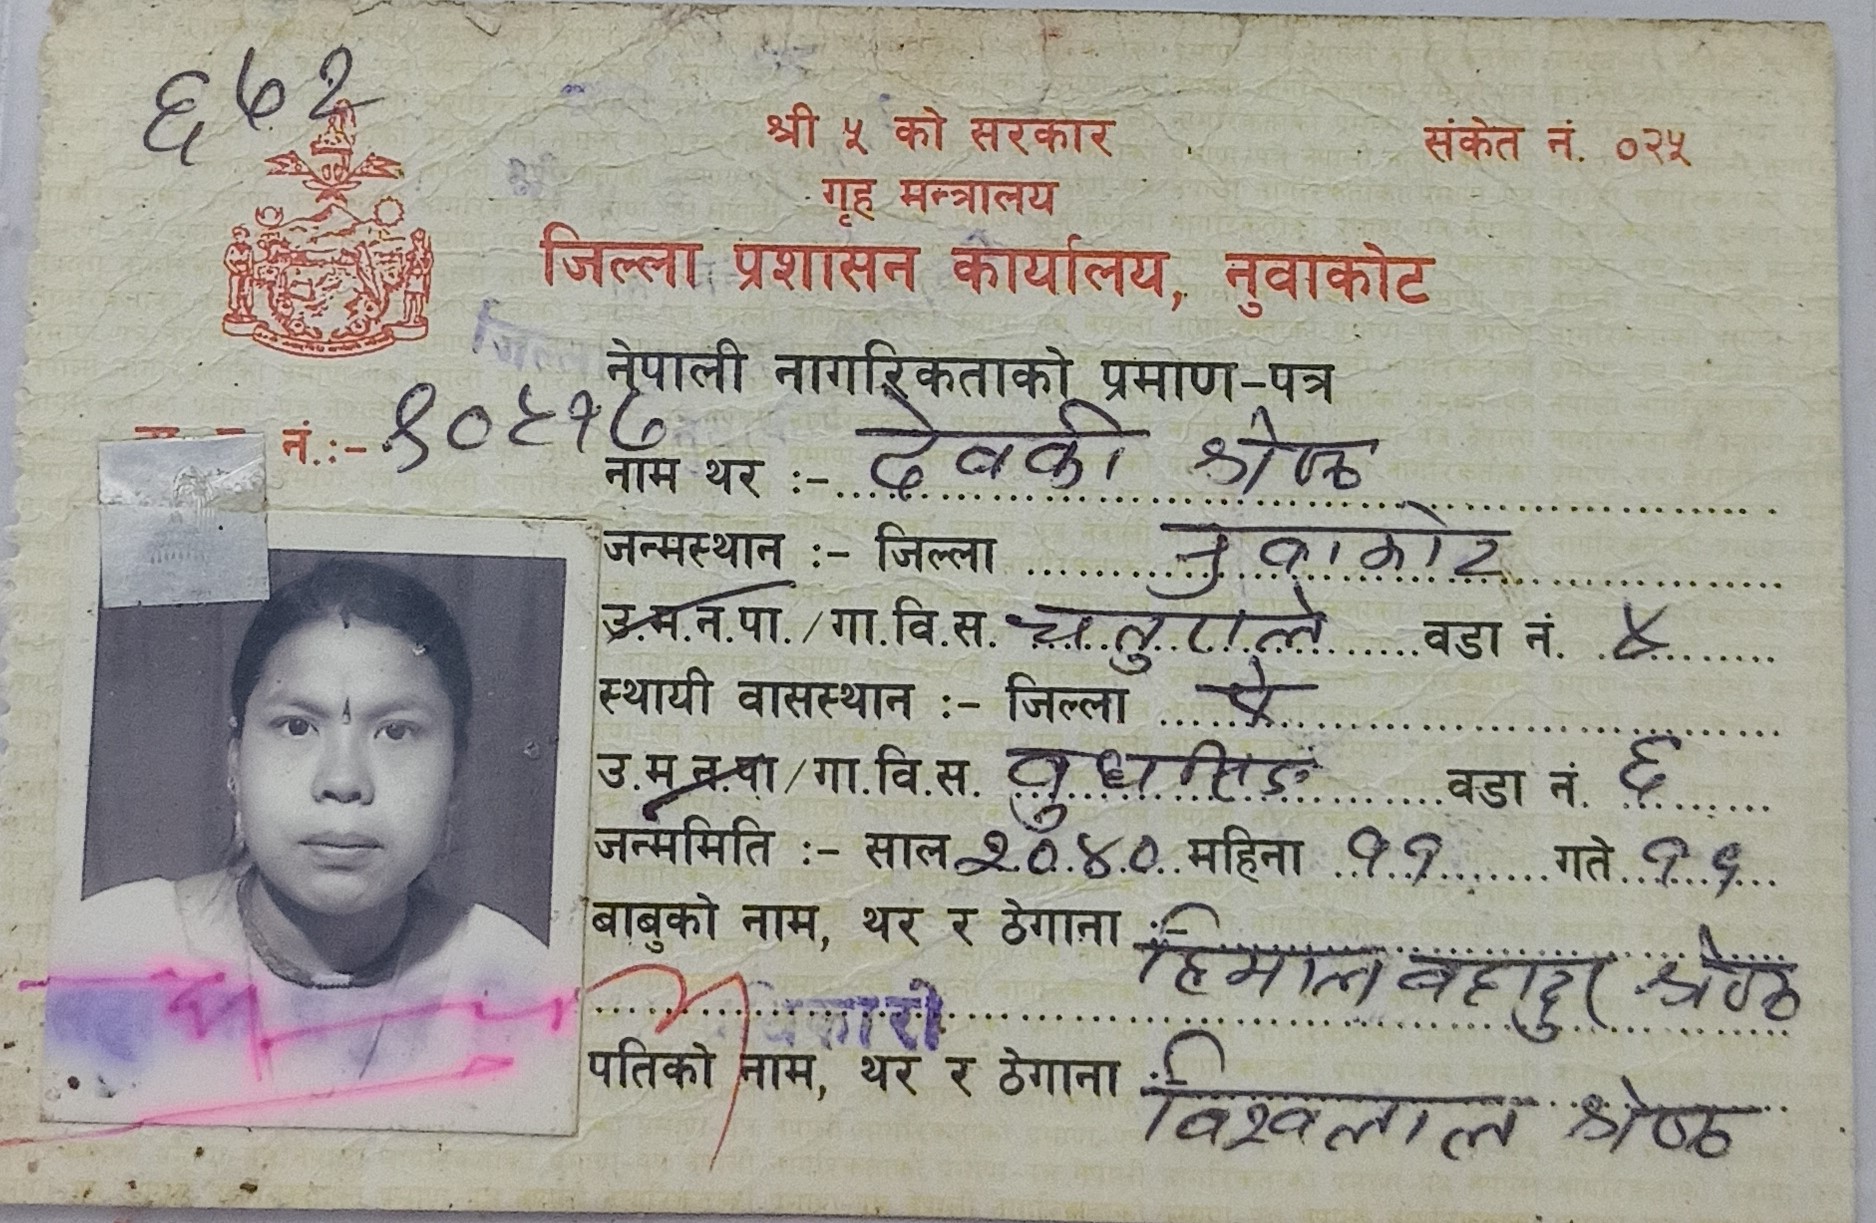 ६७२
श्री ५ को सरकार
संकेत नं. ०२५
गृह मन्त्रालय
जिल्ला प्रशासन कार्यालय, नुवाकोट
नेपाली नागरिकताको प्रमाण-पत्र
नं.:-
नाम थर :- देवकी श्रेष्ठ
जन्मस्थान :- जिल्ला नुवाकोट
उ.म.न.पा./गा.वि.स. चतुराले वडा नं. ४
स्थायी वासस्थान :- जिल्ला ऐ
उ.म.न.पा/गा.वि.स. वडा नं. ६
जन्ममिति :- साल २०४० महिना ११ गते १९
बाबुको नाम, थर र ठेगाना :-
हिमाल बहादुर श्रेष्ठ
पतिको नाम, थर र ठेगाना :-
विश्वलाल श्रेष्ठ